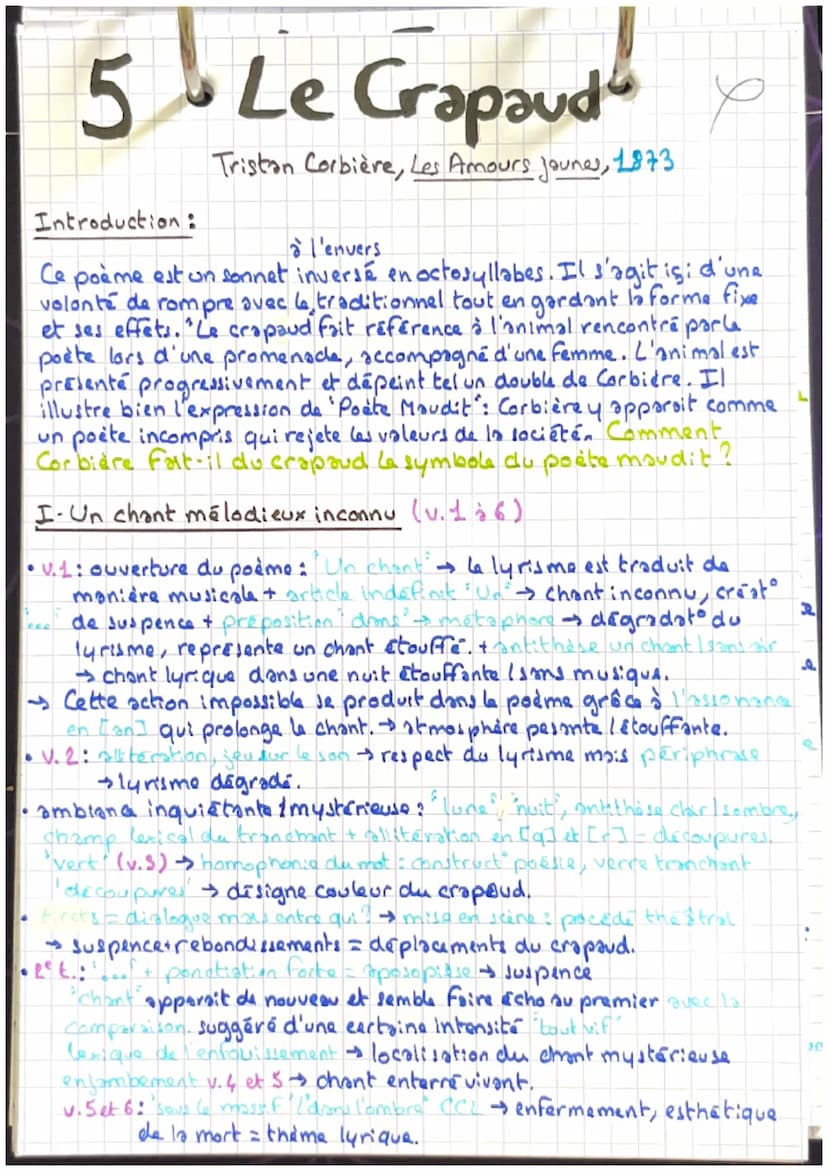 5 Le Crapaud
Tristan Corbière, Les Amours jaunes, 1873
Introduction :
à l'envers
Ce poème est un sonnet inversé en octosyllabes. Il s'agit içi d'une
volonté de rompre avec le traditionnel tout en gardant la forme fixe
et ses effets. "Le crapaud fait référence à l'animal rencontré par le
poète lors d'une promenade, accompagné d'une femme. L'animal est
présenté progressivement et dépeint tel un double de Corbière. Il
illustre bien l'expression de "Poète Maudit": Corbière y apparait comme
un poète incompris qui rejete les valeurs de la société. Comment
Corbière fait-il du crapaud le symbole du poète maudit ?
I- Un chant mélodieux inconnu (v.1 à 6)
• v.1: ouverture du poème : "Un chant" → le lyrisme est traduit de
manière musicale + article indéfinit "Un" → chant inconnu, créat°
"..." de suspence + préposition "dans" → métaphore → dégradat° du
lyrisme, représente un chant étouffé. + antithèse un chant / sans air
→ chant lyrique dans une nuit étouffante / sans musique.
→ Cette action impossible se produit dans le poème grâce à l'assonance
en [an] qui prolonge le chant. → atmosphère pesante / étouffante.
• v.2: allitération, jeu sur le son → respect du lyrisme mais périphrase
→ lyrisme dégradé.
• ambiance inquiétante / mystérieuse : "lune", "nuit", antithèse clair / sombre,
champ lexical du tranchant + allitération en [q] et [r] = découpures.
"vert" (v.3) → homophonie du mot : construct° poésie, verre tranchant
"découpures" → désigne couleur du crapaud.
• tirets = dialogue mais entre qui ? → mise en scène : procédé théâtral
→ suspence + rebondissements = déplacements du crapaud.
• 2e t.: "..." + ponctiation forte = aposopièse → suspence
"chant" apparait de nouveau et semble faire écho au premier avec la
comparaison. suggéré d'une certaine intensité "tout vif"
lexique de l'enfouissement → localisation du chant mystérieuse
enjambement v.4 et 5 → chant enterré vivant.
v.5 et 6: "sous le massif" / "dans l'ombre" CCL → enfermement, esthétique
de la mort = thème lyrique.